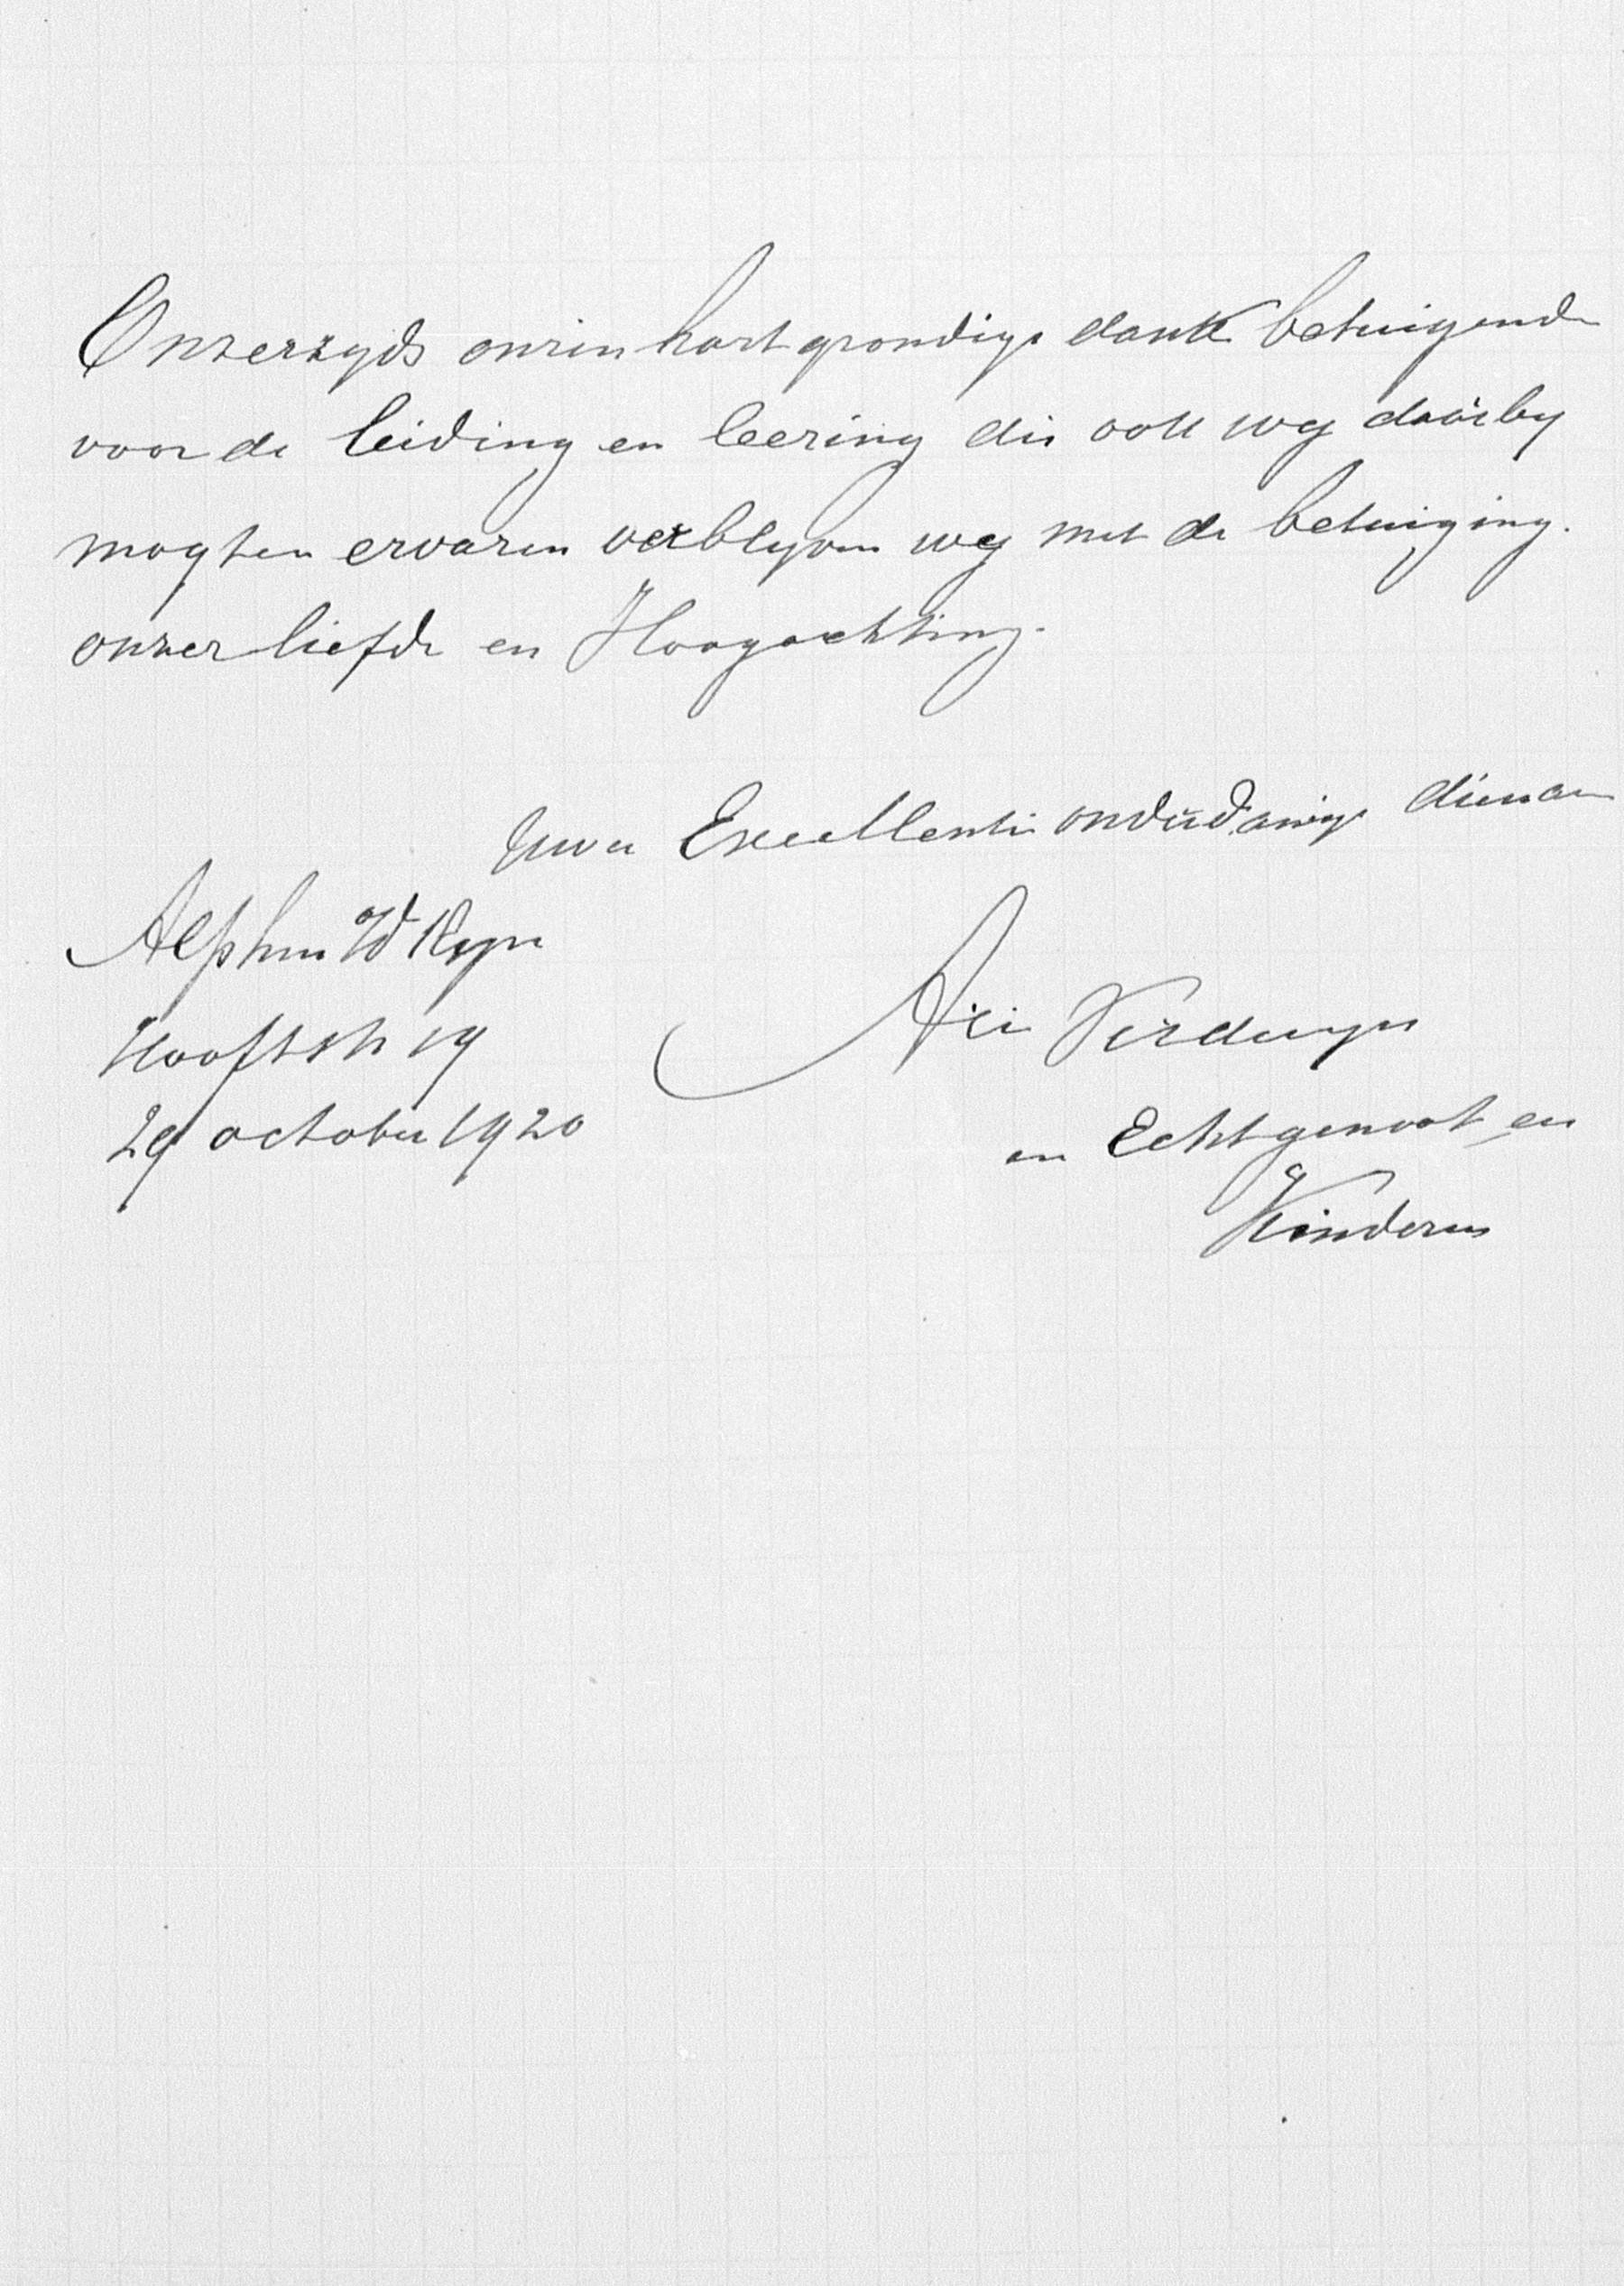 Onzerzyds onzen hartgrondige dank betuigende
voor de leiding en leering die ook wy daarby
mogten ervaren verblyven wy met de betuiging.
onzer liefde en Hoogachting.
Uwer Excellentie onderdanige dienaar
Alphen a/d Ryn
Hooftstr 19
29 october 1920
Arie Verduyn
en Echtgenoot en
Kinderen